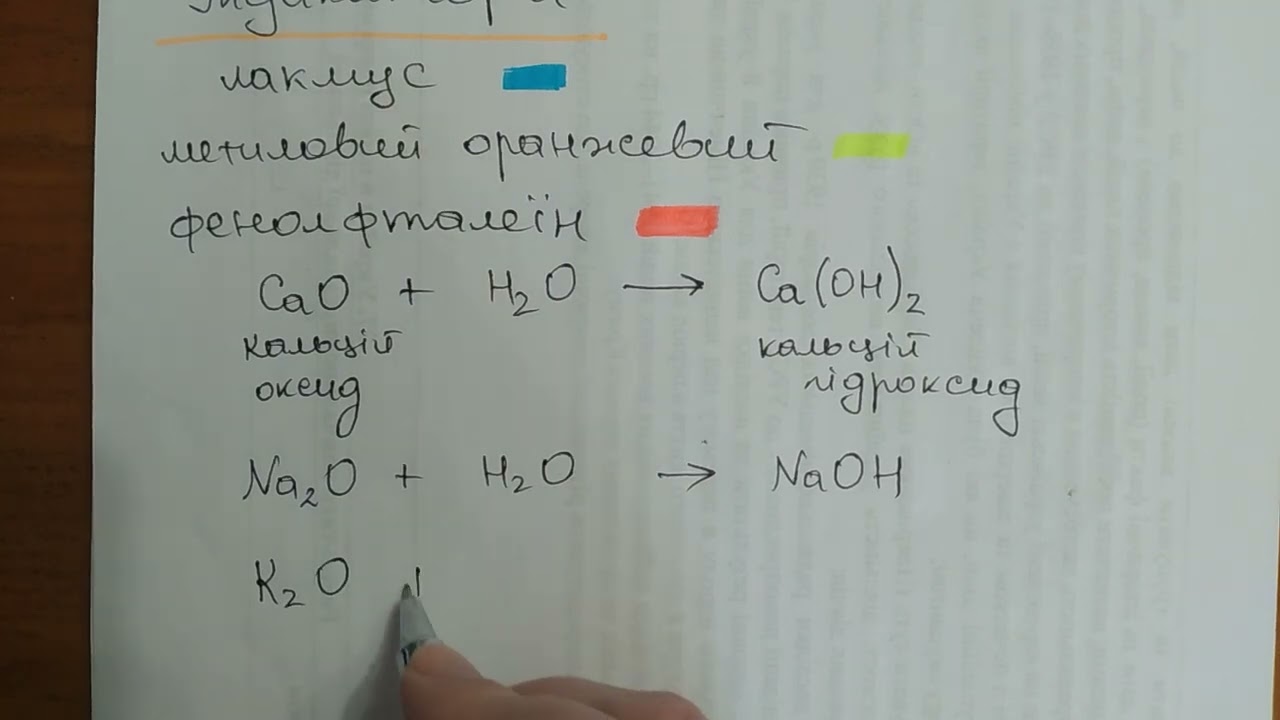 лакмус
метиловий оранжевий
фенолфталеїн
CaO + H₂O → Ca(OH)₂
кальцій кальцій
оксид гідроксид
Na₂O + H₂O → NaOH
K₂O